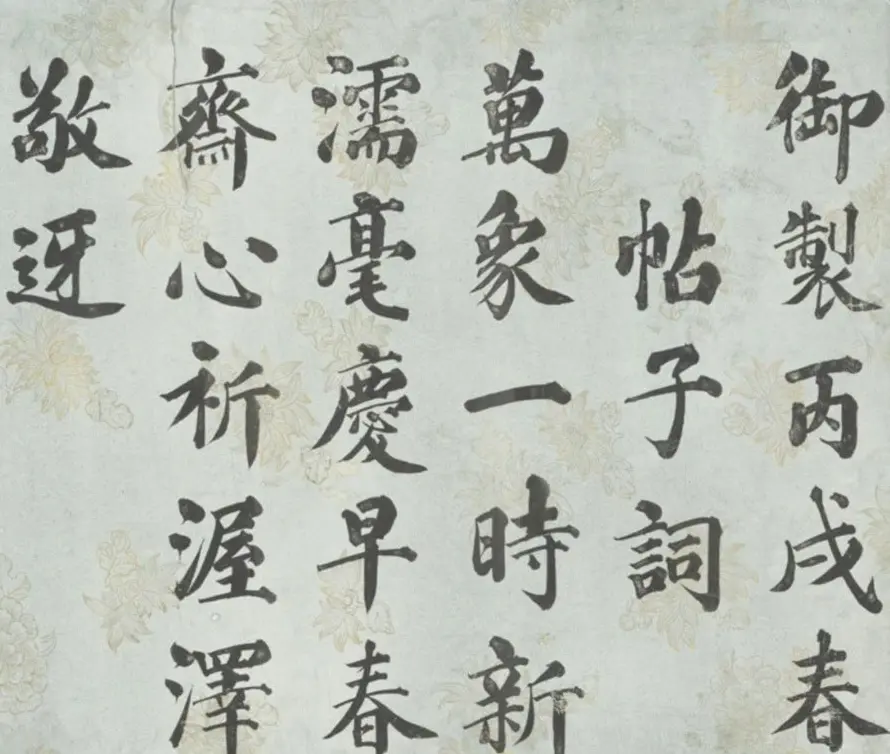 御製丙戌春
帖子詞
萬象一時新
濡毫慶早春
齋心祈渥澤
敬迓